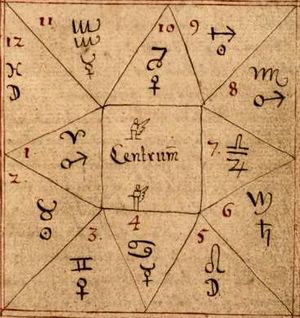 11 ♒ ☿
10 ♀
9
12 ♓ ☽
8 ♏ ♂
1 ♈ ♂
Centrum̄
7. ♎ ♃
2. ♉ ☉
6 ♄
3. ♊ ♀
4 ♋ ☿
5 ♌ ☽